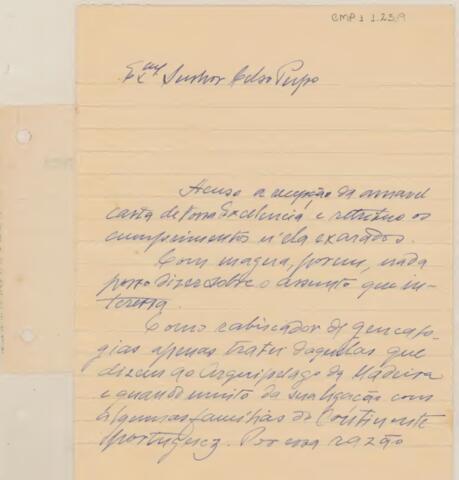 CMP 1 1.23/9
Exmº Senhor Celso Pupo
Acuso a recepção da amavel
carta de Vossa Excelencia e retribuo os
cumprimentos n'ela exarados.
Com magua, porem, nada
posso dizer sobre o assunto que in-
teressa.
Como rabiscador de genealo-
gias apenas tratei daquelas que
dizem ao Arquipelago da Madeira
e quando muito da sua ligação com
algumas familias do Continente
Portuguez. Por essa razão